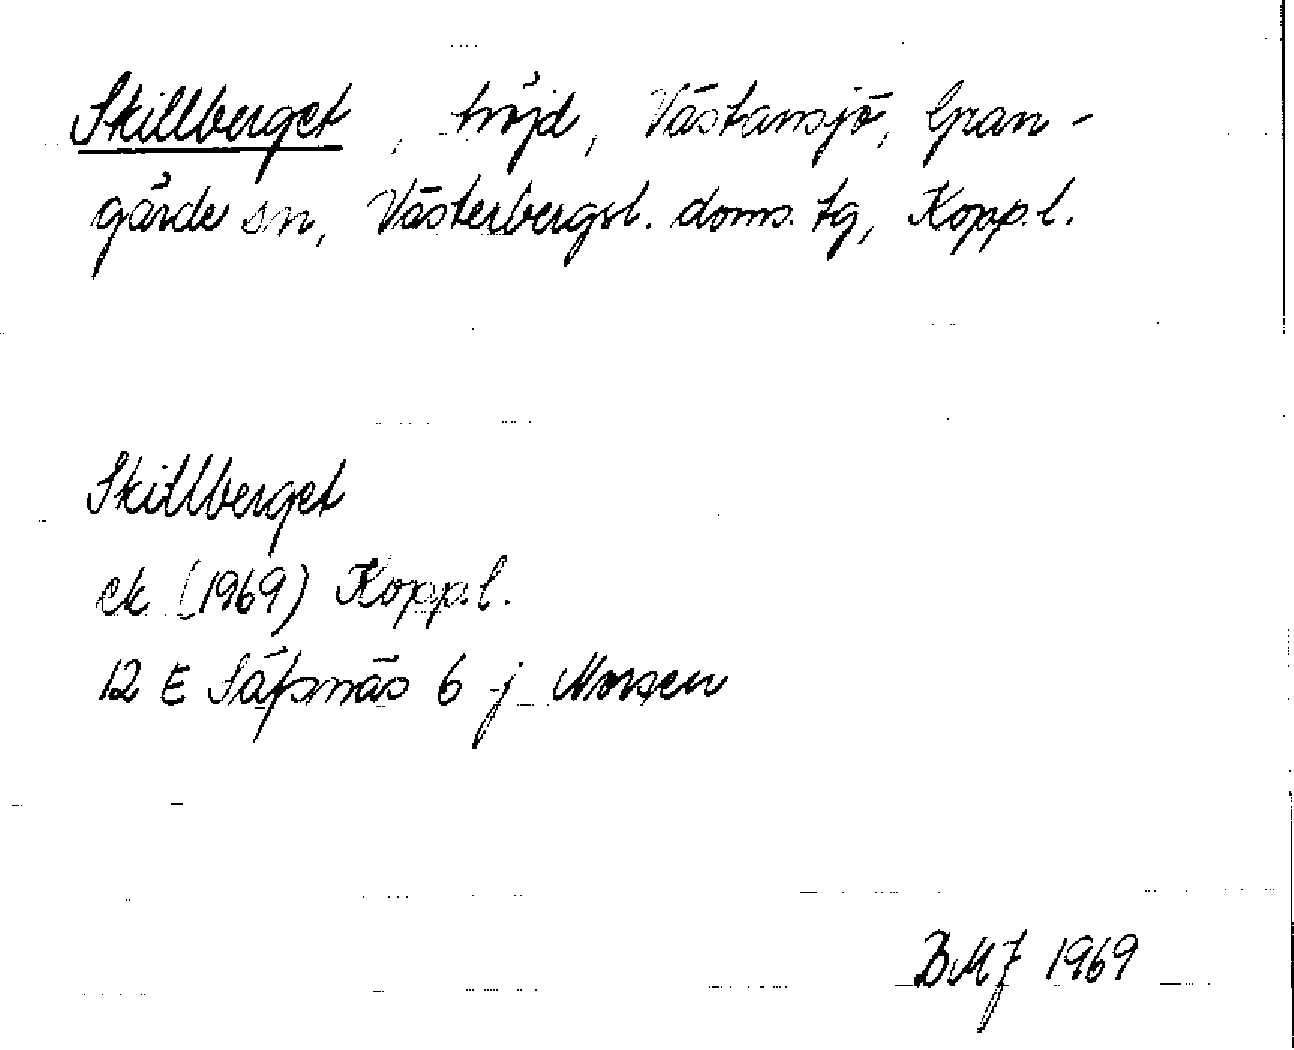 Skillberget, höjd, Västansjö, Gran-
gärde sn, Västerbergsl. doms. tg, Kopp.l.
Skillberget
ek (1969) Kopp.l.
12 E Säfsnäs 6 j Norsen
BMJ 1969